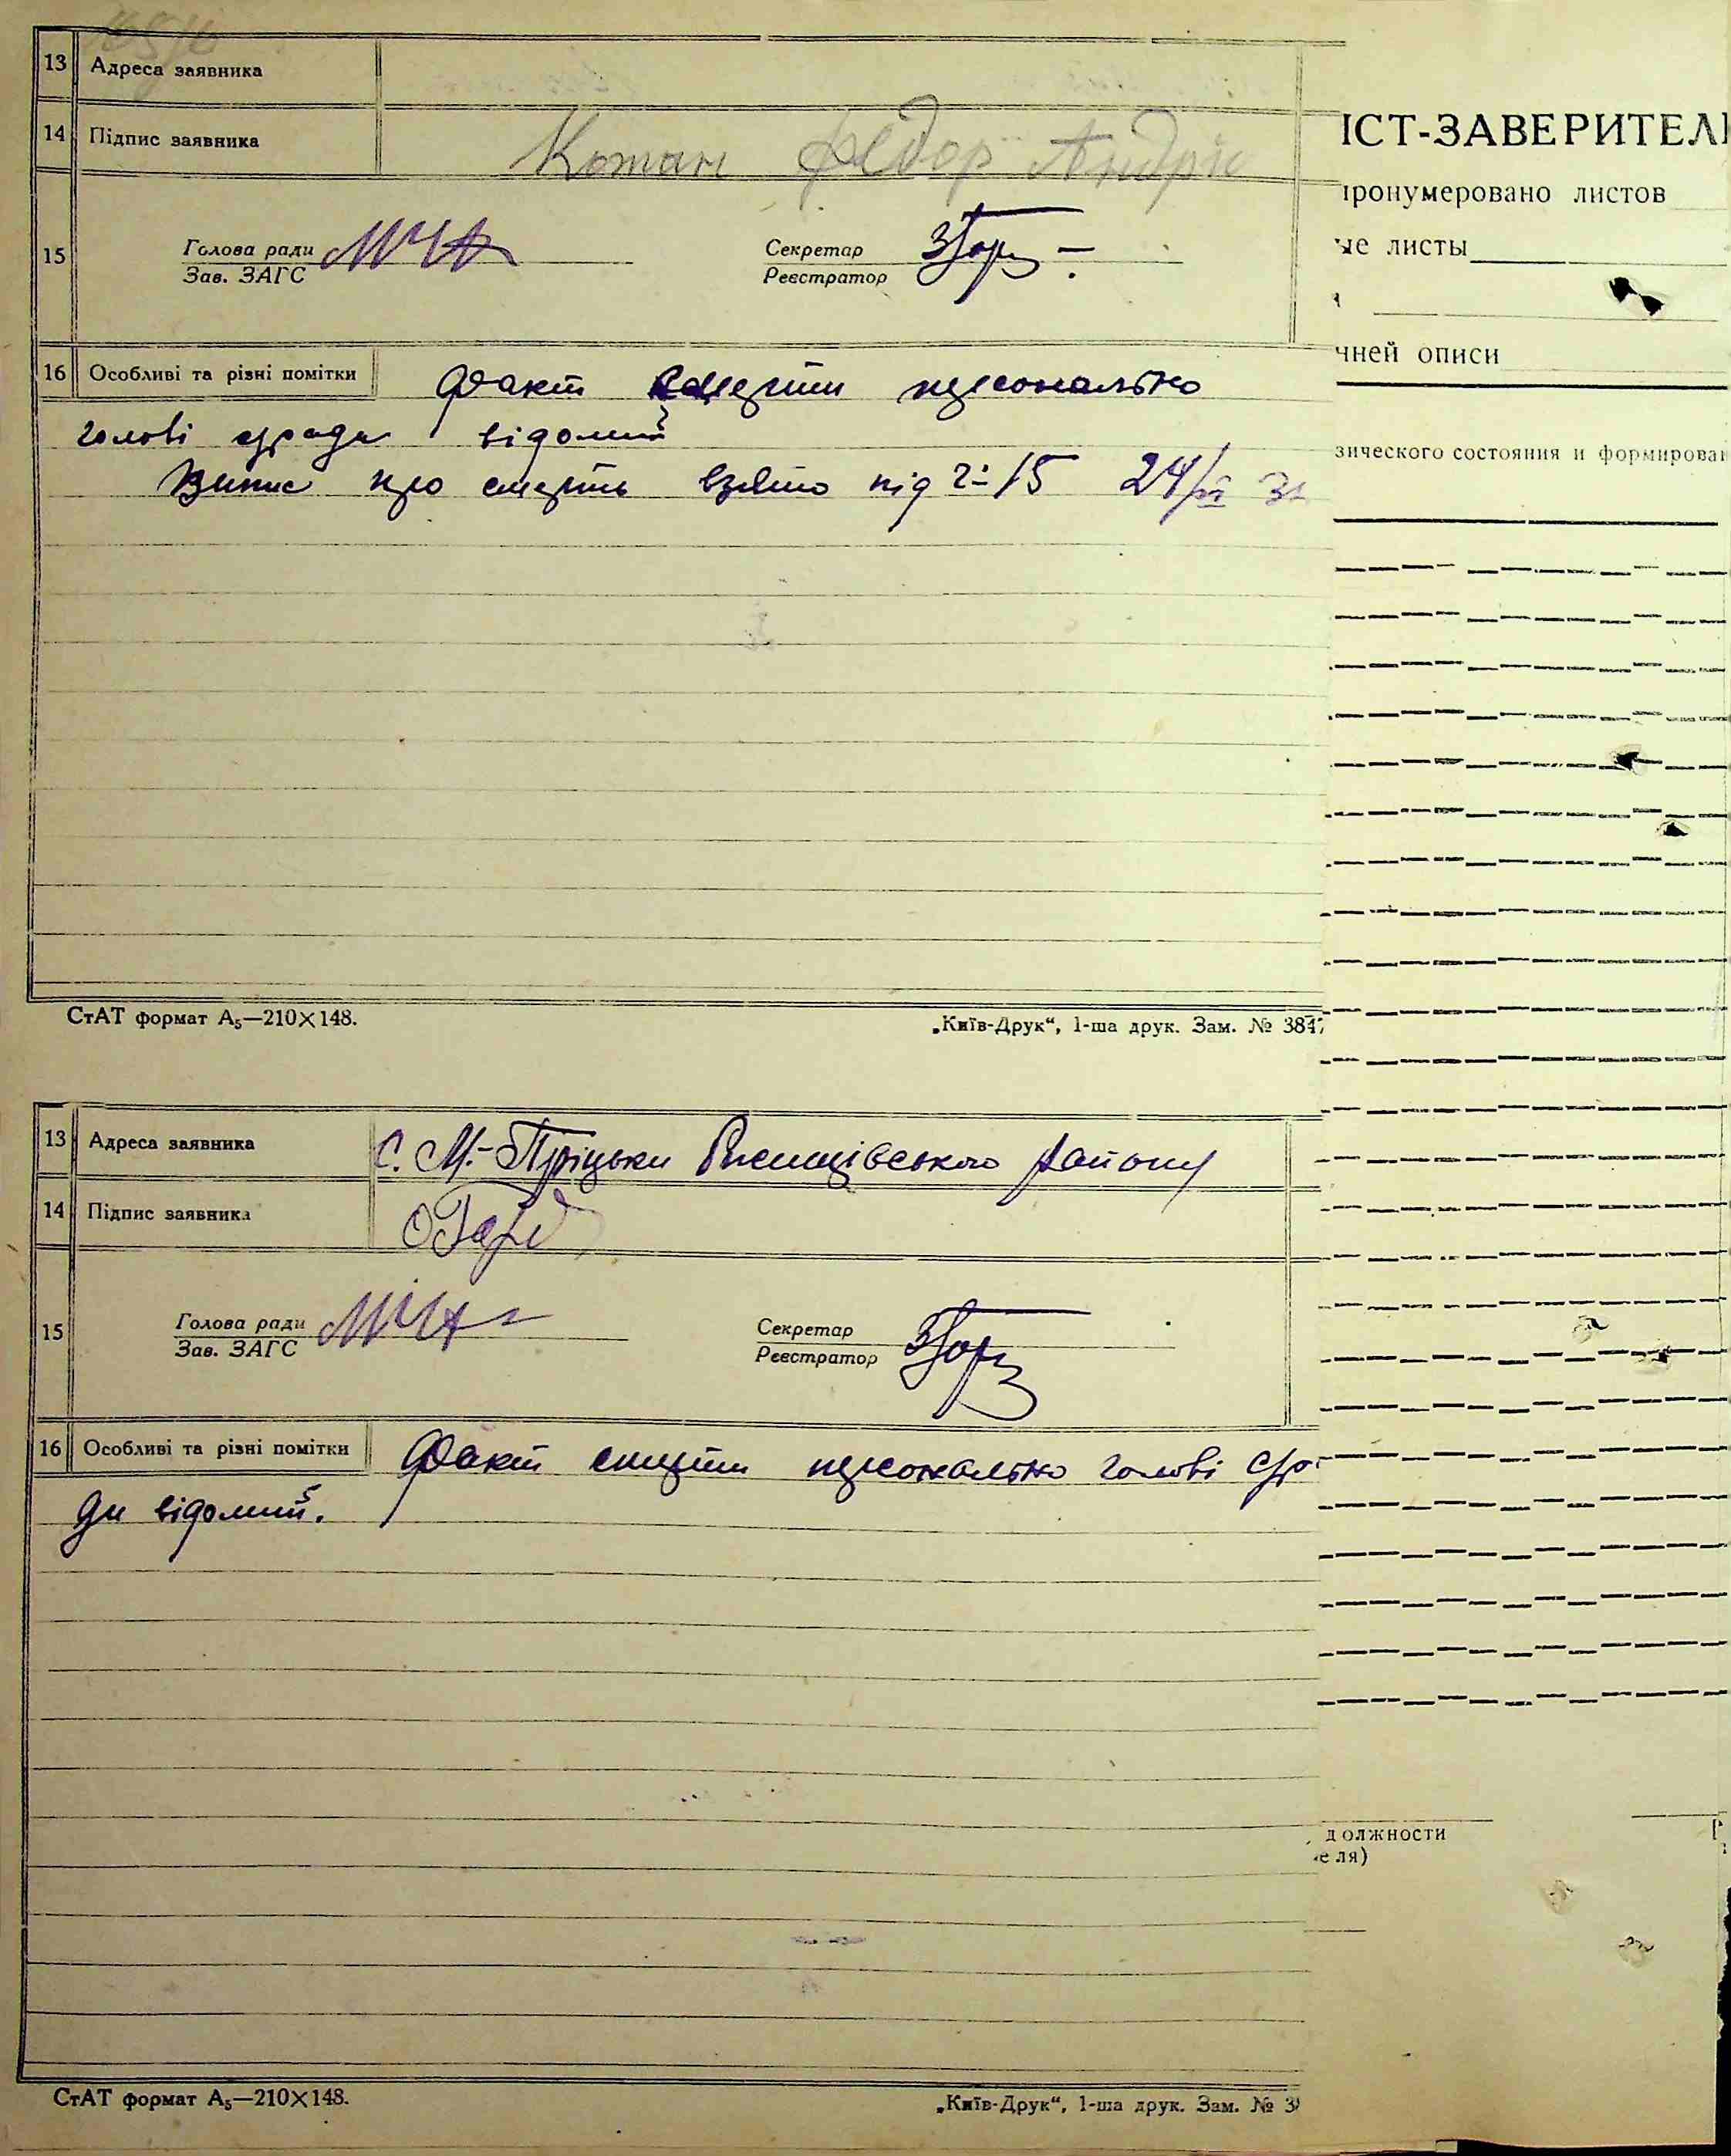 13 Адреса заявника
14 Підпис заявника Коман Федор Андрій
15 Голова ради Секретар
Зав. ЗАГС Реєстратор
16 Особливі та різні помітки Факт смерти персонально
голові сради відомий
Випис про смерть взято під № 15 24/VI
СтАТ формат А₅—210×148. „Київ-Друк“, 1-ша друк. Зам. № 3847
13 Адреса заявника с. М.-Пріцьки Ржищівського району
14 Підпис заявника
15 Голова ради Секретар
Зав. ЗАГС Реєстратор
16 Особливі та різні помітки Факт смерти персонально голові сра-
ди відомий.
СтАТ формат А₅—210×148. „Київ-Друк“, 1-ша друк. Зам. № 3
ІСТ-ЗАВЕРИТЕЛ
пронумеровано листов
ые листы
нней описи
зического состояния и формирован
должности
еля)